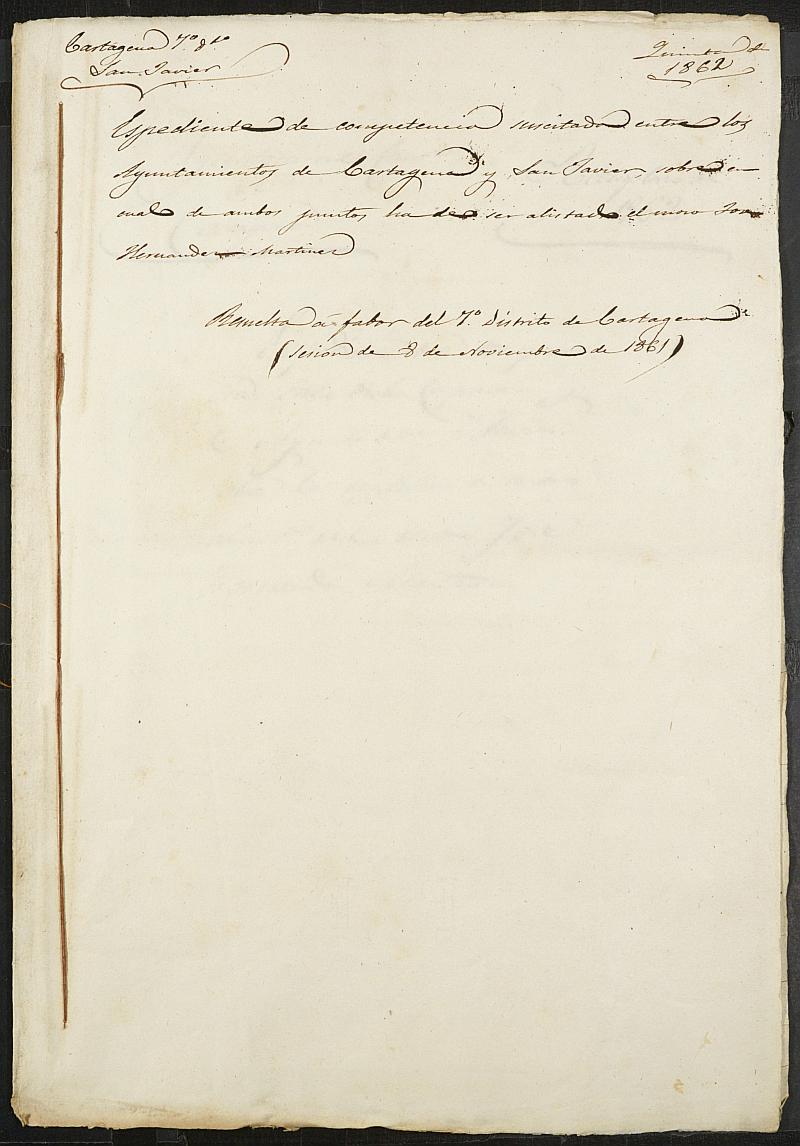 Cartagena 7º dto
San Javier
Quinta de
1862
Espediente de competencia suscitada entre los
Ayuntamientos de Cartagena y San Javier, sobre en
cual de ambos puntos ha de ser alistado el mozo
Hernandez Martinez
Resuelta á fabor del 7º Distrito de Cartagena
(Sesion de 8 de Noviembre de 1861)